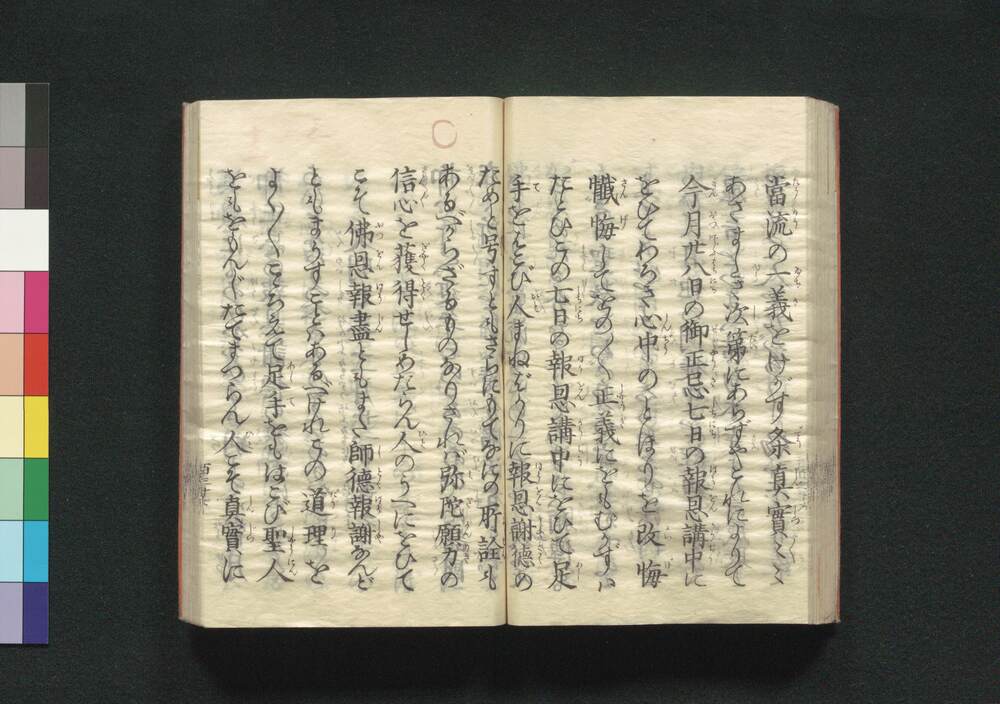 當流の一義をけがす条真實〻〻
あさましき次第にあらずやこれによりて
今月廿八日の御正忌七日の報恩講中に
をひてわろき心中のとほりを改悔
懺悔してをの〱正義にをもむかずは
たとひこの七日の報恩講中にをひて足
手をはこび人まねばかりに報恩謝徳の
ためと号すともさらにもてなにの所詮も
あるべからざるものなりされば弥陀願力の
信心を獲得せしめたらん人のうへにをひて
こそ佛恩報盡ともまた師徳報謝なんど
ともまうすことはあるべけれこの道理を
よく〱こゝろえて足手をもはこび聖人
をもをもんじたてまつらん人こそ真實に